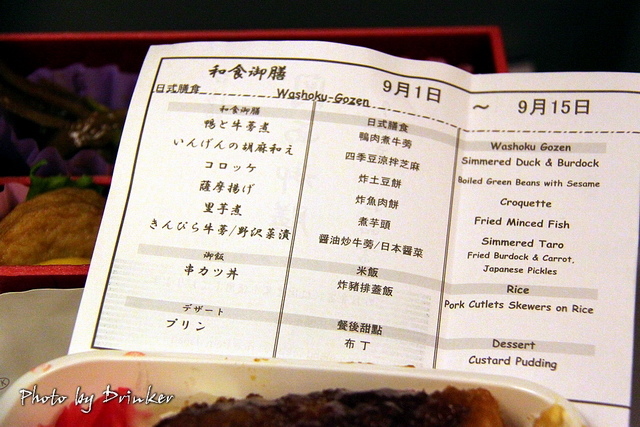 和食御膳
9月1日 ～ 9月15日
日式膳食 Washoku Gozen
和食御膳
鴨と牛蒡煮
いんげんの胡麻和え
コロッケ
薩摩揚げ
里芋煮
きんぴら牛蒡/野沢菜漬
御飯
串カツ丼
デザート
プリン
日式膳食
鴨肉煮牛蒡
四季豆涼拌芝麻
炸土豆餅
炸魚肉餅
煮芋頭
醬油炒牛蒡/日本醬菜
米飯
炸豬排蓋飯
餐後甜點
布丁
Washoku Gozen
Simmered Duck & Burdock
Boiled Green Beans with Sesame
Croquette
Fried Minced Fish
Simmered Taro
Fried Burdock & Carrot,
Japanese Pickles
Rice
Pork Cutlets Skewers on Rice
Dessert
Custard Pudding
Photo by Drinker